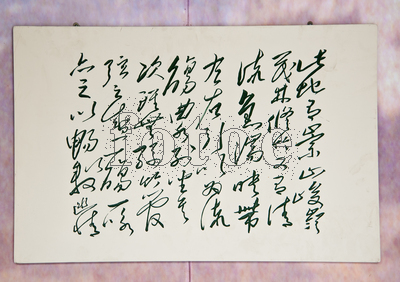 此地有崇山峻嶺
茂林修竹又有清
流激湍映帶
左右引以為流
觴曲水列坐其
次雖無絲竹管
弦之盛一觴一詠
亦足以暢敘幽情
fotoe